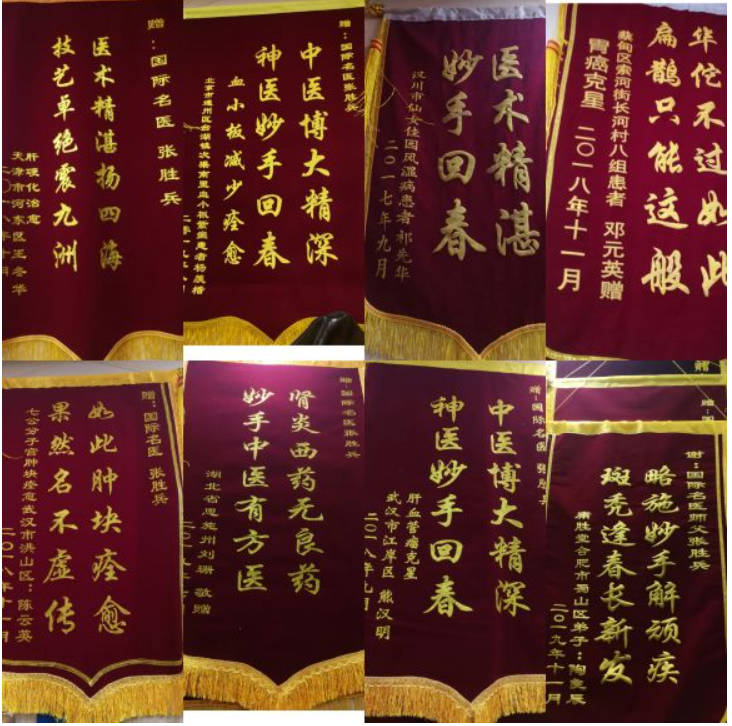 赠：国际名医 张胜兵
医术精湛扬四海
技艺卓绝震九洲
肝硬化治愈
天津市河东区王冬华
二〇一八年十月
赠：国际名医张胜兵
中医博大精深
神医妙手回春
血小板减少痊愈
医术精湛
妙手回春
汉川市仙女佳园风湿病患者 祁先华
二〇一七年九月
华佗不过如此
扁鹊只能这般
蔡甸区索河街长河村八组患者 邓元英赠
胃癌克星 二〇一八年十一月
赠：国际名医 张胜兵
如此肿块痊愈
果然名不虚传
七公分子宫肿块痊愈武汉市洪山区：陈云英
二〇一八年十一月
赠：国际名医张胜兵
肾炎西药无良药
妙手中医有方医
湖北省恩施州刘珊 敬赠
赠：国际名医 张胜兵
中医博大精深
神医妙手回春
肝血管瘤克星
武汉市江岸区 熊汉明
二〇一八年九月
赠
赠：国
谢：国际名医师父张胜兵
略施妙手解顽疾
斑秃逢春长新发
二〇一九年十一月